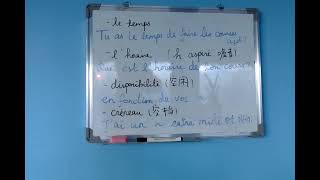 - le temps
Tu as le temps de faire les courses
- l'horaire (h aspiré
est l'horaire de ton cours
- disponibilité (空闲)
en fonction de vos ~
- créneau (空档)
J'ai un ~ entre midi et